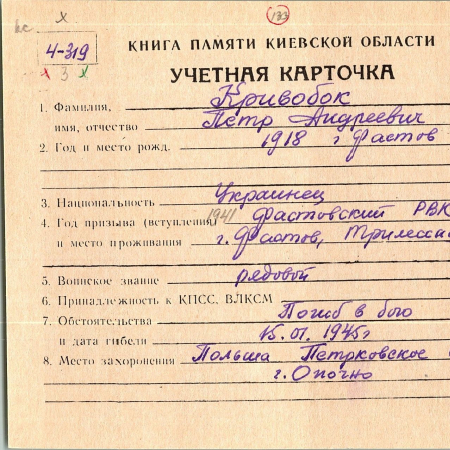 кс х 133
4-319
х 3 х
КНИГА ПАМЯТИ КИЕВСКОЙ ОБЛАСТИ
УЧЕТНАЯ КАРТОЧКА
1. Фамилия, Кривобок
имя, отчество Петр Андреевич
2. Год и место рожд. 1918 г Фастов
3. Национальность Украинец
4. Год призыва (вступления) 1941 Фастовский РВК
и место проживания г. Фастов, Трилесск
5. Воинское звание рядовой
6. Принадлежность к КПСС, ВЛКСМ
7. Обстоятельства Погиб в бою
и дата гибели 15.01.1945г
8. Место захоронения Польша Петрковское
г. Опочно